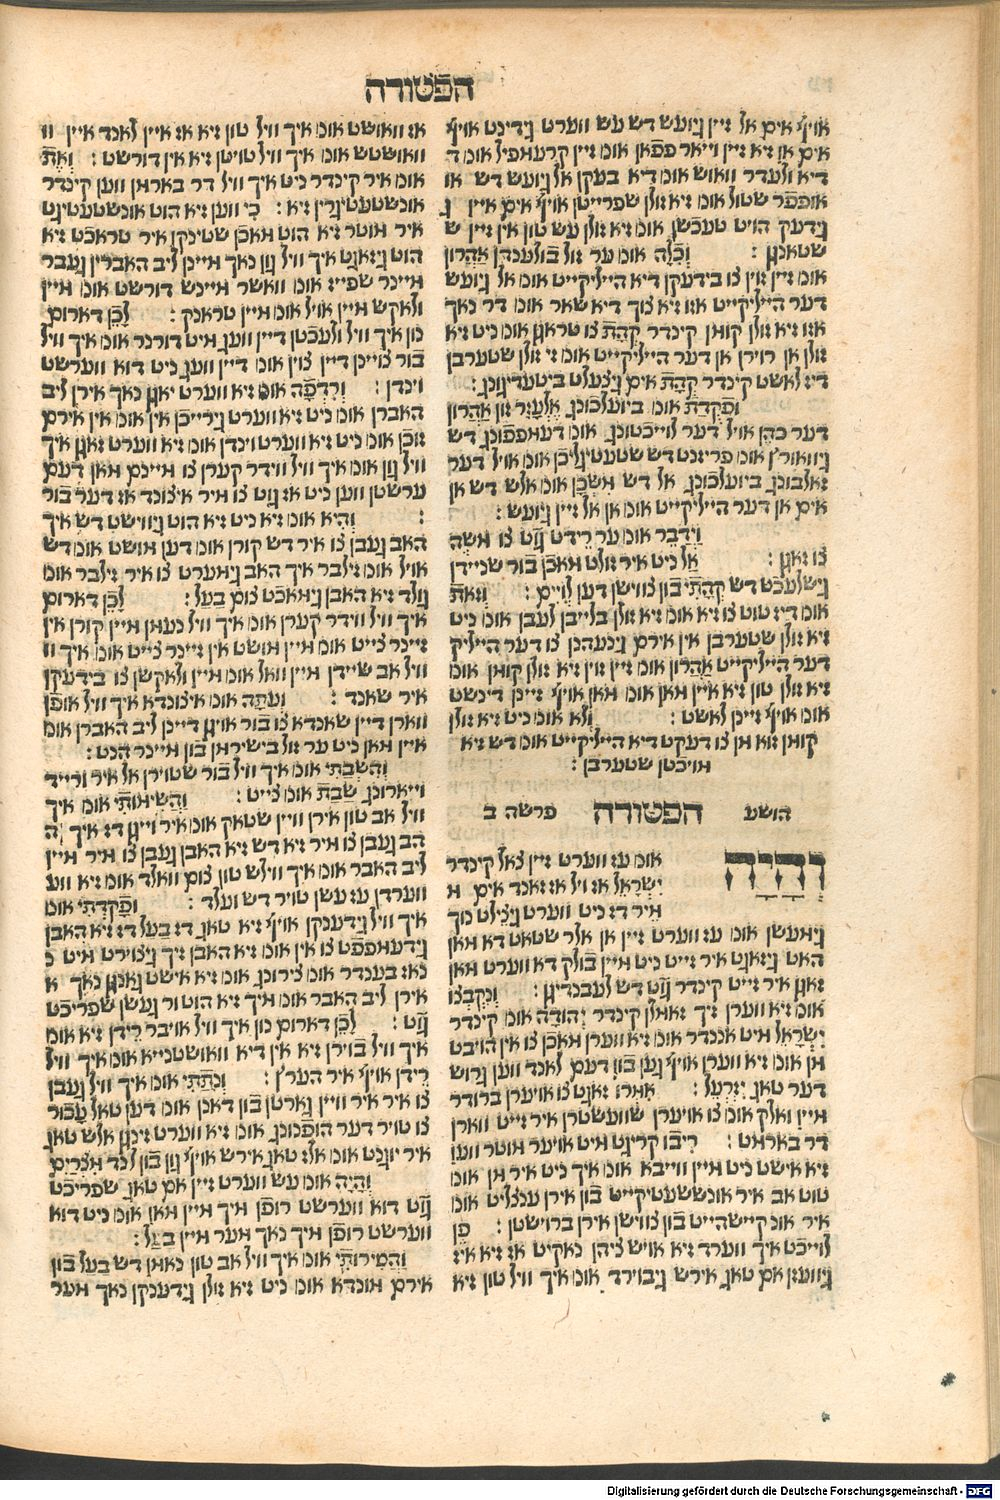 הפטורה
אויף אים אל זיין גיועש דש עש ווערט גידינט אויף
אים אן זיא זיין וייאר פפאן אומ זיין קרעאפיל אומ ד
דיא ולעדר וואוש אומ דיא בעקן אל גיועש דש או
אופפר שטול אומ זיא זולן שפרייטן אויף אים איין ג
גידעק הויט טעכשן אומ זיא זולן עש טון אין זיין ש
שטאנגן : וְכִלָה אומ ער זול בולענדן אַהֲרוֹן
אומ זיין זוין צו בידעקן דיא הייליקייט אומ אל גיועש
דער הייליקייט אזו זיא צוך דיא שאר אומ דר נאך
אזו זיא זולן קומן קינדר קְהָת צו טראגן אומ ניט זיא
זולן אן רוירן אן דער הייליקייט אומ זי זולן שטערבן
דיז לאשט קינדר קְהָת אים גיצעלט ביטעדיגונג :
וּפְקֻדַת אומ ביועלכונג אֶלְעָזָר זון אַהֲרוֹן
דער כהן אויל דער לוייכטונג אומ דעמפפונג דש
גיוואורץ אומ פריזנט דש שטעטיגליכן אומ אויל דער
זאלבונג ביועלכונג אל דש מִשְכָן אומ אלש דש אן
אים אן דער הייליקייט אומ אן אל זיין גיועש :
וַיְדַבֵר אומ ער רידט גֿוט צו משֶה
צו זאגן : אַל ניט איר זולט מאכן בור שניידן
גישלעכט דש קְהָתִי בון צווישן דען לְוִיִים : וְזֹאת
אומ דיז טוט צו זיא אומ זיא זולן בלייבן לעבן אומ ניט
זיא זולן שטערבן אין אירם גינעהנן צו דער הייליק
דער הייליקייט אַהֲרוֹן אומ זיין זוין זיא זולן קומן אומ
זיא זולן טון זיא איין מאן אומ מאן אויף זיינן דינשט
אומ אויף זיינן לאשט : וְלֹא אומ ניט זיא זולן
קומן צו זעהן אז מן צו דעקט דיא הייליקייט אומ דש זיא
מויכטן שטערבן :
הושע הפטורה פרשה ב
וְהָיָה אומ עז ווערט זיין צאל קינדר
יִשְרָאֵל אז ויל אז זאנד אים מ
מיר דז ניט ווערט גיצילט נוך
גימעשן אומ עז ווערט זיין אן אלר שטאט דא מאן
האט גיזאגט איר זייט ניט מיין בולק דא ווערט מאן
זאגן איר זייט קינדר גֿוט דש לעבנדיגן : וְנִקְבְצוּ
אומ זיא ווערן זיך זאמלן קינדר יְהוּדָה אומ קינדר
יִשְרָאֵל מיט אננדר אומ זיא ווערן מאכן צו אין הויבט
אן אומ זיא ווערן אויף גֿען בון דעם לאנד ווען גרוש
דער טאג יִזְרְעֶל : אִמְרוּ זאגט צו אויערן ברודר
מיין ואלק אומ צו אויערן שוועשטרן איר זייט ווארן
דר בארמט : רִיבוּ קריגט מיט אויער מוטר ווען
זיא אישט ניט מיין ווייבא אומ איך ניט איר מן אומ
טוט אב איר אונששעטיקייט בון אירן ענצליט אומ
איר אונ קיישהייט בון צווישן אירן ברוישטן : פֶן
לוייכט איך ווערד זיא אויש ציהן נאקיט אז זיא איז
גיוועזן אם טאג אירש גיבוירד אומ איך וויל טון זיא
אז וואושט אומ איך וויל טון זיא אז איין לאנד איין וו
וואושטש אומ איך וויל טויטן זיא אין דורשט : וְאֶת
אומ איר קינדר ניט איך וויל דר בארמן ווען קינדר
אונשטעטיגרין זיא : כִי ווען זיא הוט אונשטעטיגט
איר מוטר זיא הוט מאכן שטינקן איר טראכט זיא
הוט גיזאגט איך וויל גֿון נאך מיינן ליב האברין געבר
מיינר שפייז אומ וואשר מיינש דורשט אומ מיין
ולאקש מיין אויל אומ מיין טראנק : לָכֵן דארום
נון איך וויל ולעכטן דיין וועג מיט דורנר אומ איך וויל
בור צוינן דיין צוין אומ דיין וועג ניט דוא ווערשט
וינדן : וְרִדְפָה אומ זיא ווערט יאגן נאך אירן ליב
האברן אומ ניט זיא ווערט גירייכן אין אומ אין אירם
זוכן אומ ניט זיא ווערט וינדן אומ זיא ווערט זאגן איך
וויל גֿון אומ איך וויל ווידר קערן צו מיינם מאן דעם
ערשטן ווען ניט אז גוט צו מיר איצונד אז דער בור
: וְהִיא אומ זיא ניט זיא הוט גיווישט דש איך
האב געבן צו איר דש קורן אומ דען מושט אומ דש
אויל אומ זילבר איך האב גימערט צו איר זילבר אומ
גולד זיא האבן גימאכט צום בַעַל : לָכֵן דארום
איך וויל ווידר קערן אומ איך וויל נעמן מיין קורן אין
זיינר צייט אומ מיין מושט אין זיינר צייט אומ איך וו
וויל אב שיידן מיין וואל אומ מיין ולאקשן צו בידעקן
איר שאנד : וְעַתָה אומ איצונדא איך וויל אופן
ווארן דיין שאנדא צו בור אויגן דיינן ליב האברן אומ
איין מאן ניט ער זול בישירמן בון מיינר הנט :
וְהִשְבַתִי אומ איך וויל בור שטוירן אל איר ורייד
וייארונג שַבַת אומ צייט : וַהֲשִימוֹתִי אומ איך
וויל אב טון אירן וויין שטאק אומ איר וייגן דז איך ה
הב געבן צו מיר זיא דש זיא האבן געבן צו מיר מיין
ליב האבר אומ איך ווילש טון צום וואלד אומ זיא ווע
ווערדן עז עשן טויר דש ועלד : וּפָקַדְתִי אומ
איך וויל גידענקן אויף זיא טאג דז בַעַל דז זיא האבן
גידעמפפט צו אין אומ זיא האבן זיך גיצוירט מיט נ
נאז בענדר אומ צירונג אומ זיא אישט גאנגן נאך א
אירן ליב האבר אומ מיך זיא הוט ור געשן שפריכט
גֿוט : לָכֵן דארום נון איך וויל אויבר רידן זיא אומ
איך וויל בוירן זיא אין דיא וואושטנייא אומ איך וויל
רידן אויף איר הערץ : וְנָתַתִי אומ איך וויל געבן
צו איר איר וויין גארטן בון דאנן אומ דען טאל עָכוֹר
צו טויר דער הופנונג אומ זיא ווערט זינגן אלש טאג
איר יוגנט אומ אלז טאג אירש אויף גֿון בון לנד מִצְרָיִם
וְהָיָה אומ עש ווערט זיין אם טאג שפריכט
גֿוט דוא ווערשט רופן מיך מיין מאן אומ ניט דוא
ווערשט רופן מיך נאך מער מיין בַעַל :
וַהֲסִירוֹתִי אומ איך וויל אב טון נאמן דש בַעַל בון
אירם מונדא אומ ניט זיא זולן גידענקן נאך מער
Digitalisierung gefördert durch die Deutsche Forschungsgemeinschaft - DFG